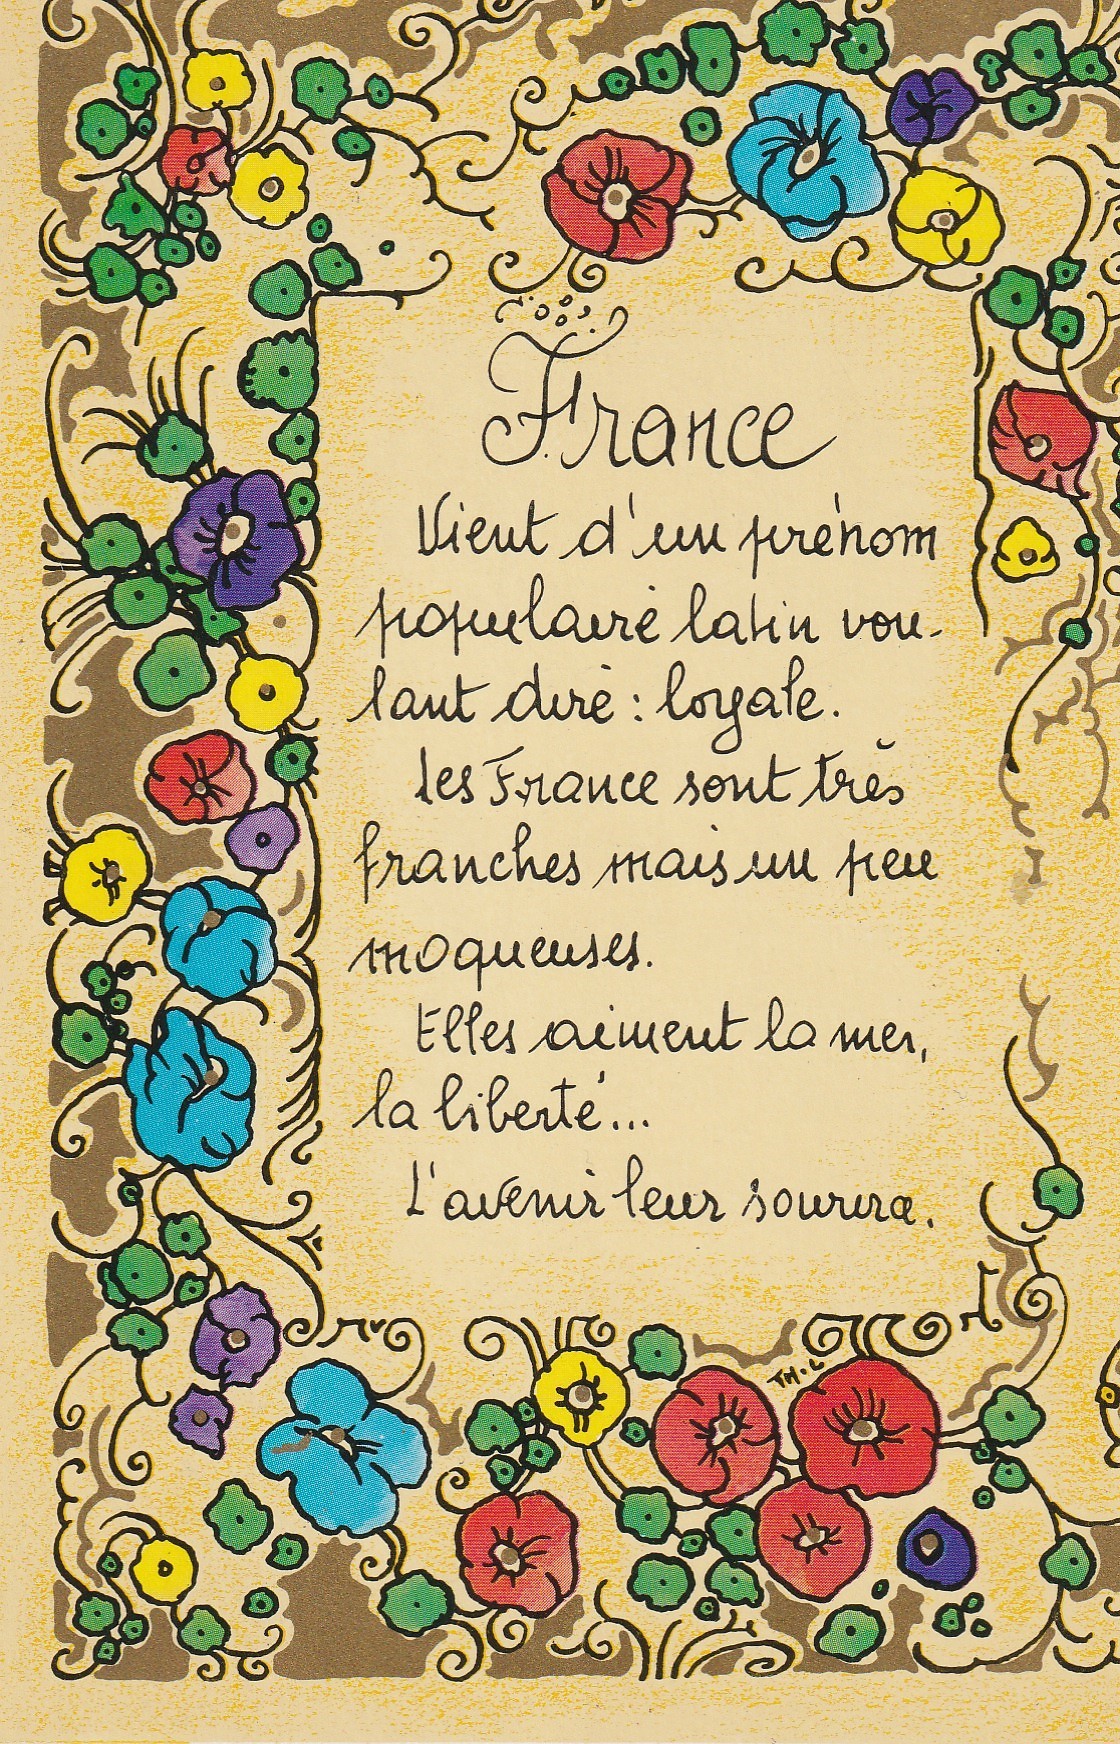 France
Vient d'un prénom
populaire latin vou-
lant dire : loyale.
Les France sont très
franches mais un peu
moqueuses.
Elles aiment la mer,
la liberté...
L'avenir leur sourira.
TH.L